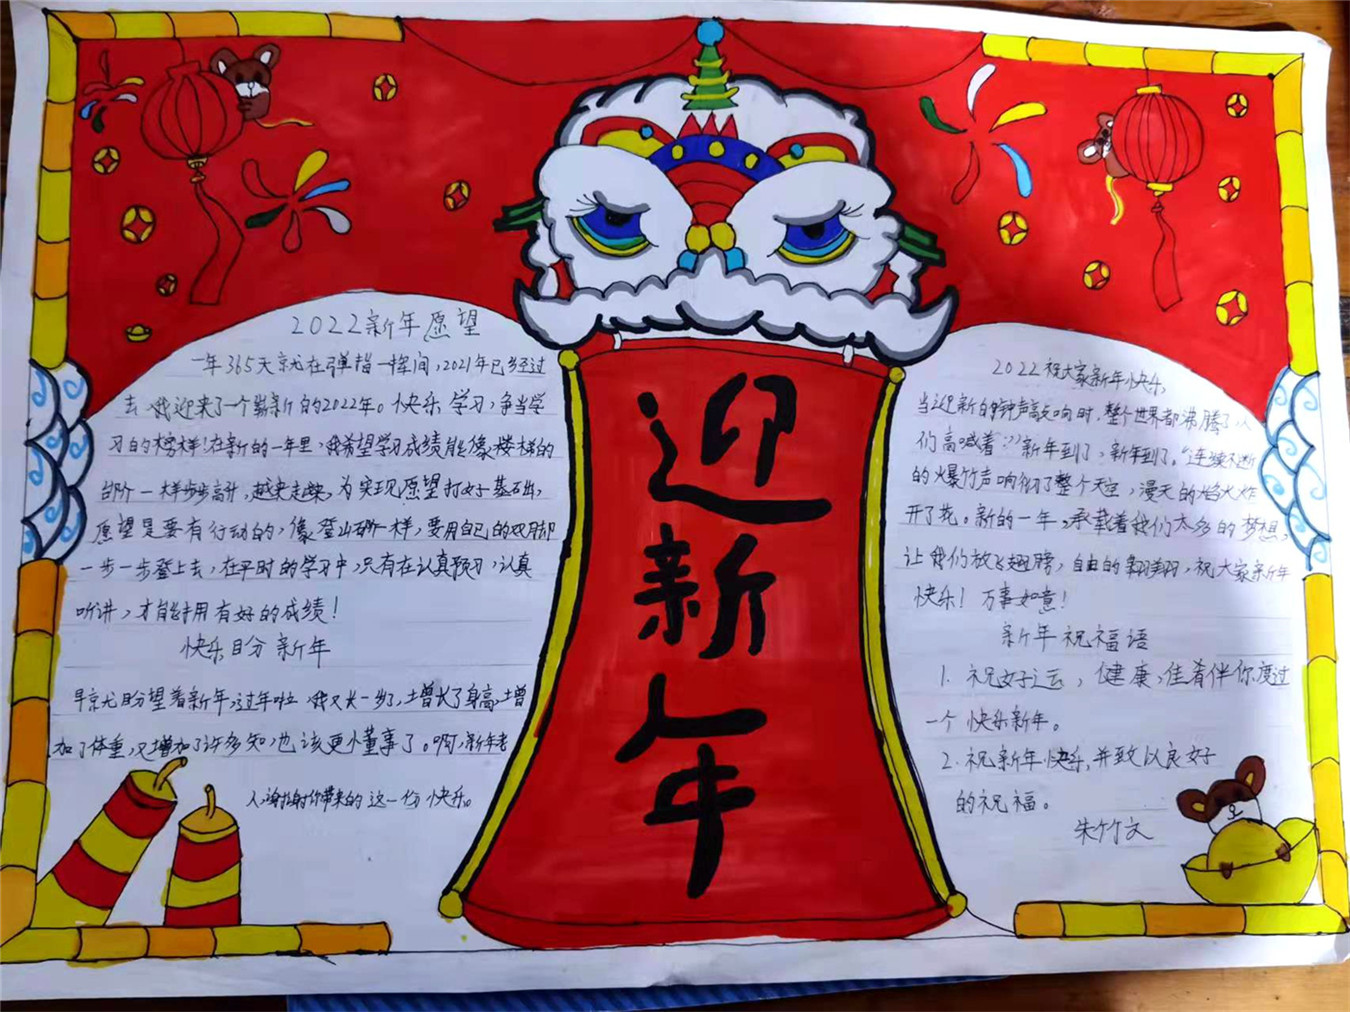 2022新年愿望
一年365天就在弹指一挥间,2021年已经过
去,我迎来了一个崭新的2022年。快乐学习,争当学
习的榜样!在新的一年里,我希望学习成绩能像楼梯的
台阶一样步步高升,越来越,为实现愿望打好基础,
愿望是要有行动的,像登山一样,要用自己的双脚
一步一步登上去,在平时的学习中,只有在认真预习,认真
听讲,才能有好的成绩!
快乐盼新年
早就盼望着新年,过年啦,我又长一岁,增长了身高,增
加了体重,又增加了许多知,也该更懂事了。啊,新年老
人,谢谢你带来的这一份快乐。
迎新年
2022祝大家新年快乐
当迎新的钟声敲响时,整个世界都沸腾了,人
们高喊着:"新年到了,新年到了。"连续不断
的爆竹声响彻了整个天空,漫天的焰火炸
开了花。新的一年,承载着我们太多的梦想,
让我们放飞翅膀,自由的翱翔,祝大家新年
快乐!万事如意!
新年祝福语
1.祝好运,健康,佳肴伴你度过
一个快乐新年。
2.祝新年快乐,并致以良好
的祝福。
朱竹文